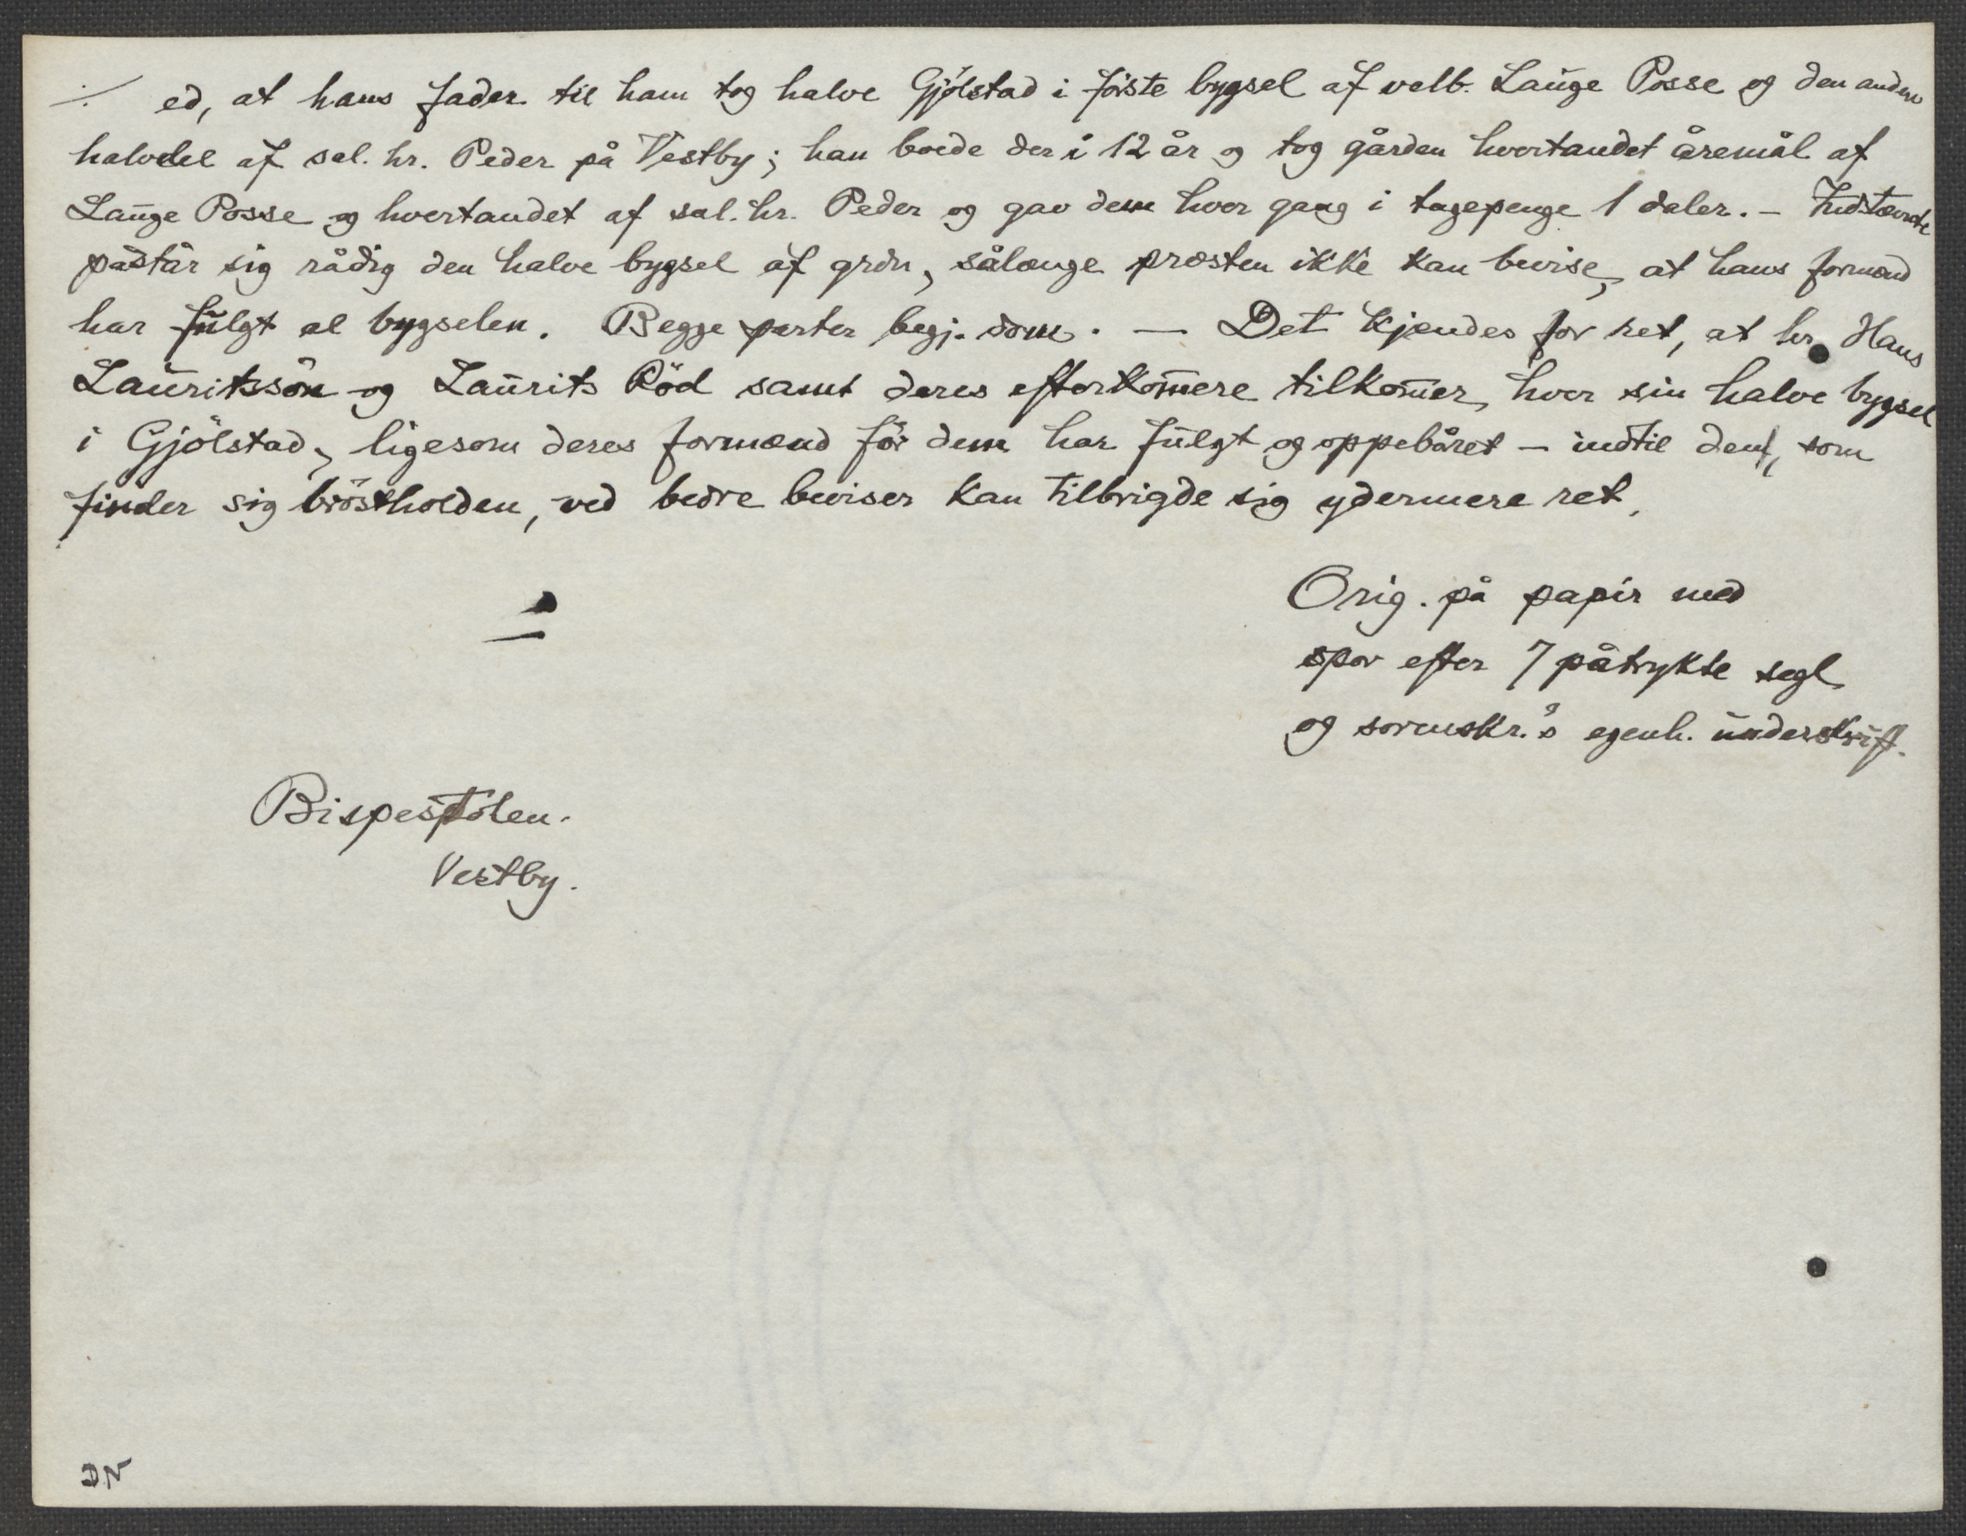 ./. ed, at hans fader til ham tog halve Gjölstad i förste bygsel af velb. Lauge Posse og den anden
halvdel af sal. hr. Peder på Vestby; han boede der i 12 år og tog gården hvertandet åremål af
Lauge Posse og hvertandet af sal. hr. Peder og gav dem hver gang i tagepenge 1 daler. – Indstævnte
påstår sig rådig den halve bygsel af grdn, sålænge præsten ikke kan bevise, at hans formænd
har fulgt al bygselen. Begge parter begj. dom. — Det kjendes for ret, at hr. Hans
Lauritssön og Laurits Röd samt deres efterkom̅ere tilkom̅er hver sin halve bygsel
i Gjölstad, ligesom deres formænd för dem har fulgt og oppebåret – indtil den, som
finder sig bröstholden, ved bedre beviser kan tilbrigde sig ydermere ret.
Orig. på papir med
spor efter 7 påtrykte segl
og sorenskr.'s egenh. underskrift.
Bispestolen.
Vestby.
DN